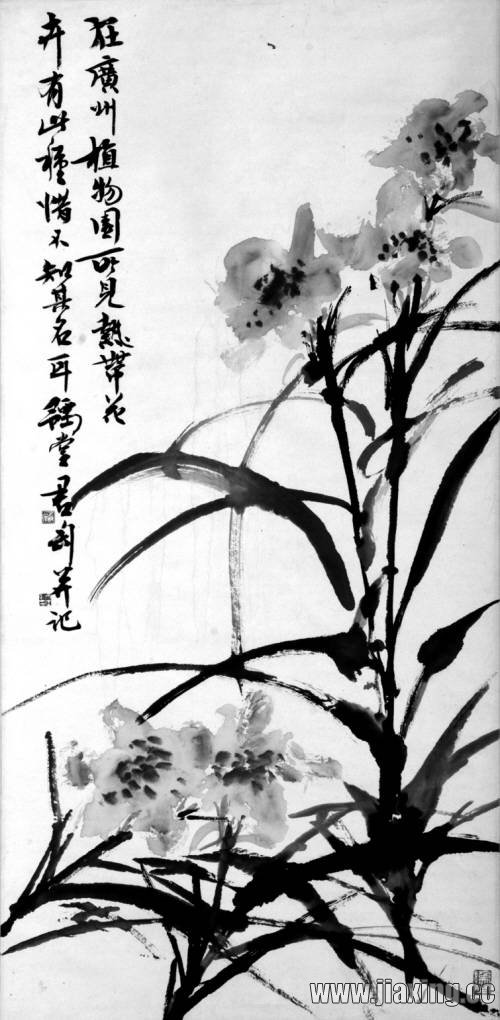 在廣州植物園所見熱帶花
卉有此種惜不知其名耳 君匋并记
www.jiaxing.cc